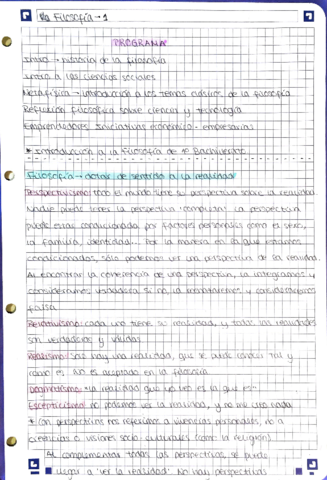 Filosofía - 1
PROGRAMA
Intro → historia de la filosofía
Intro a las ciencias sociales
Metafísica → introducción a los temas clásicos de la filosofía
Reflexión filosófica sobre ciencia y tecnología
Emprendedores iniciativas económico - empresarias
* Introducción a la filosofía de 1º Bachillerato
Filosofía → dotar de sentido a la realidad
Perspectivismo: todo el mundo tiene su perspectiva sobre la realidad
Nadie puede tener la perspectiva completa. La perspectiva
puede estar condicionada por factores personales como el sexo,
la familia, identidad... Por la manera en la que estamos
condicionados, sólo podemos ver una perspectiva de la realidad.
Al encontrar la coherencia de una perspectiva, la integramos y
consideramos verdadera si no, la
falsa
Relativismo: cada uno tiene su realidad, y todas las realidades
son verdaderas y válidas
Realismo: solo hay una realidad, que se puede conocer tal y
como es. No es aceptado en la filosofía
Dogmatismo: "la realidad que yo veo es la que es"
Escepticismo: no podemos ver la realidad, y no me creo nada
* Con perspectivas nos referimos a vivencias personales, no a
creencias o visiones socio-culturales (como la religión)
Al complementar todas las perspectivas, se puede
llegar a 'ver la realidad'. No hay perspectivas